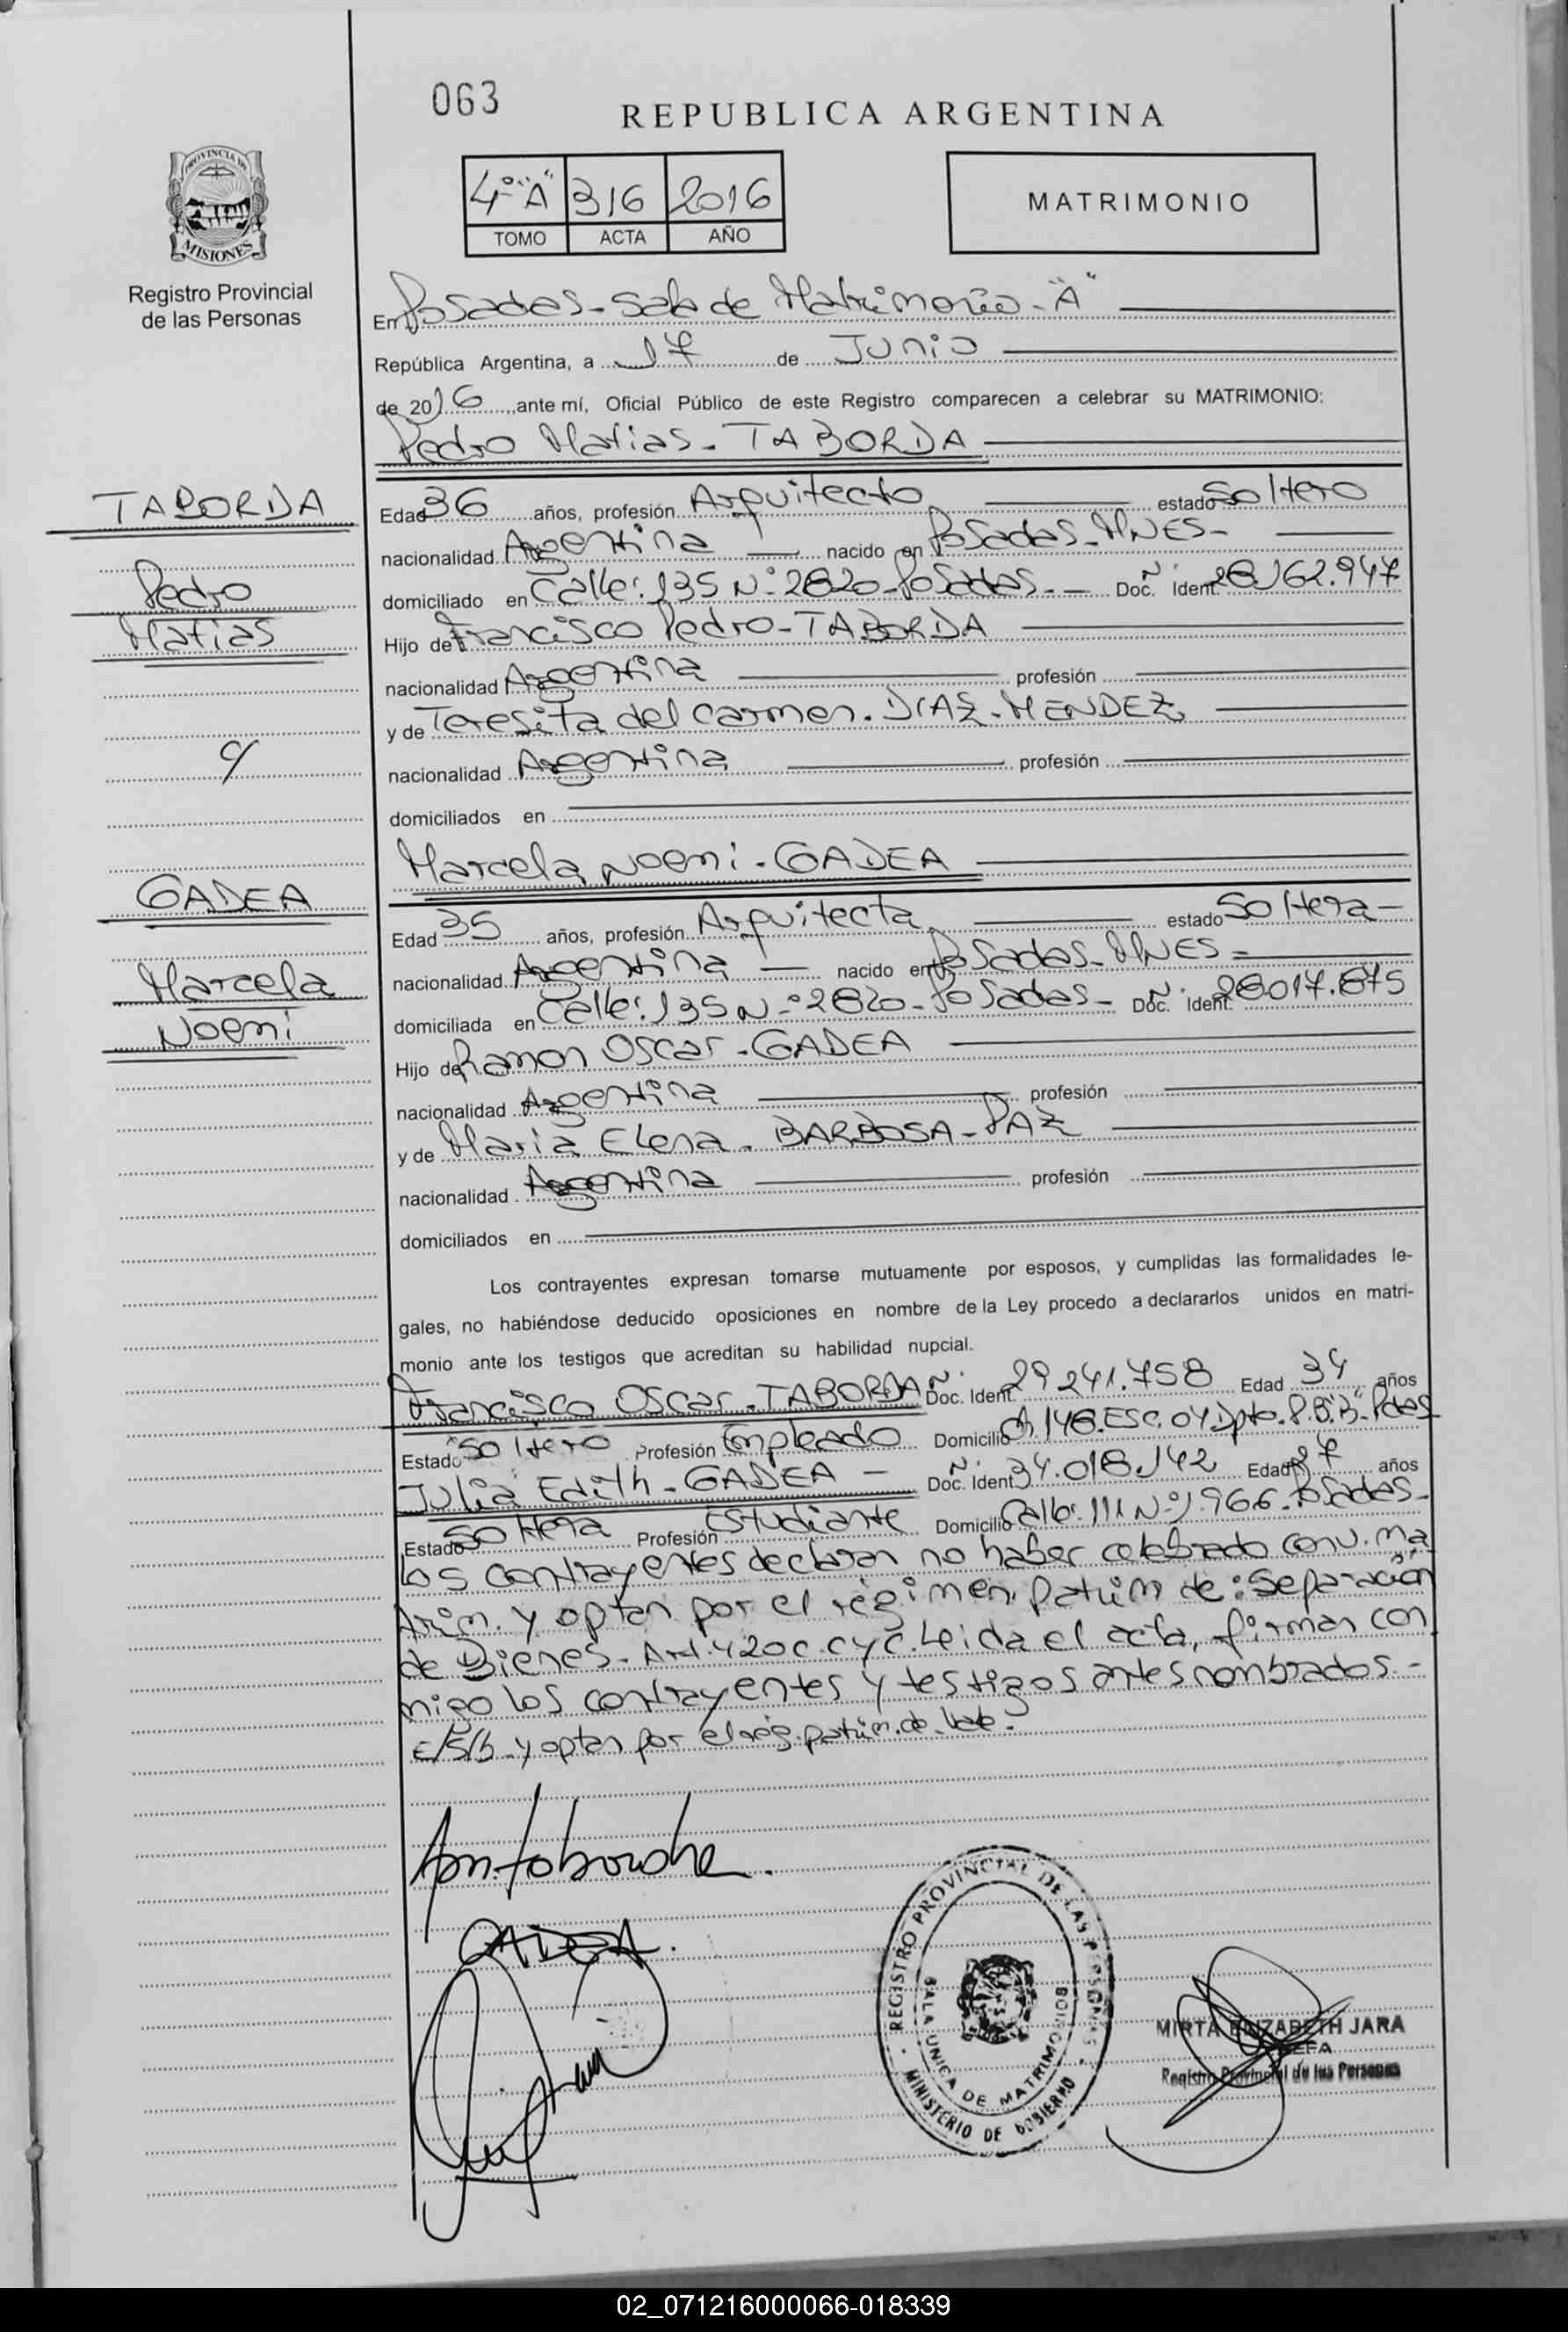 063
REPUBLICA ARGENTINA
4° "A" 316 2016
TOMO ACTA AÑO
MATRIMONIO
PROVINCIA DE
MISIONES
Registro Provincial
de las Personas
En Posadas - Sala de Matrimonio - "A"
República Argentina, a 17 de Junio
de 2016, ante mí, Oficial Público de este Registro comparecen a celebrar su MATRIMONIO:
Pedro Matias - TABORDA
TABORDA
Pedro
Matias
c/
GADEA
Marcela
Noemi
Edad 36 años, profesión Arquitecto estado Soltero
nacionalidad Argentina nacido en Posadas - MNES -
domiciliado en Calle: 135 N° 2820 - Posadas. - Doc. Ident. 28.162.947
Hijo de Francisco Pedro - TABORDA
nacionalidad Argentina profesión
y de Teresita del Carmen. DIAZ - MENDEZ
nacionalidad Argentina profesión
domiciliados en
Marcela Noemi - GADEA
Edad 35 años, profesión Arquitecta estado Soltera -
nacionalidad Argentina nacido en Posadas - MNES =
domiciliada en Calle: 135 N° 2820 - Posadas - Doc. Ident. 28.017.875
Hijo de Ramon Oscar - GADEA
nacionalidad Argentina profesión
y de Maria Elena - BARBOSA - PAZ
nacionalidad Argentina profesión
domiciliados en
Los contrayentes expresan tomarse mutuamente por esposos, y cumplidas las formalidades le-
gales, no habiéndose deducido oposiciones en nombre de la Ley procedo a declararlos unidos en matri-
monio ante los testigos que acreditan su habilidad nupcial.
Francisco Oscar - TABORDA Doc. Ident. 29.241.758 Edad 34 años
Estado Soltero Profesión Empleado Domicilio 148. ESC. 04 Dpto. P.B."B" - Pdas
Julia Edith - GADEA - Doc. Ident. 34.018.142 Edad 27 años
Estado Soltera Profesión Estudiante Domicilio Calle: 111 N° 1.966 - Posadas -
Los contrayentes declaran no haber celebrado conv. ma
trim. y optan por el régimen patrim de: Separación
de Bienes - Art. 420 C. C y C. Leida el acta, firman con
migo los contrayentes y testigos antes nombrados. -
E/S/b - y optan por el rég. patrim. de - Vale. -
GADEA.
REGISTRO PROVINCIAL DE LAS PERSONAS
SALA UNICA DE MATRIMONIOS
MINISTERIO DE GOBIERNO
MIRTA ELIZABETH JARA
JEFA
Registro Provincial de las Personas
02_071216000066-018339